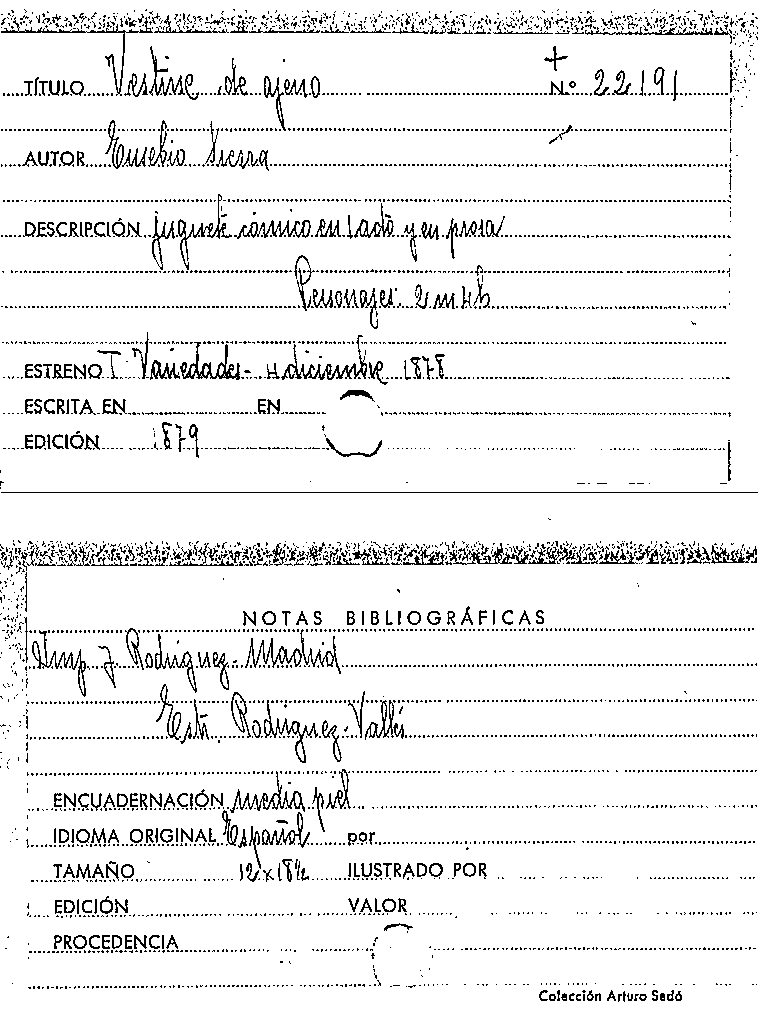 TÍTULO Vestirse de ajeno + Nº 22191
AUTOR Eusebio Sierra
DESCRIPCIÓN juguete cómico en 1 acto y en prosa
Personajes: 2 m 4 h
ESTRENO T. Variedades - 4 diciembre 1878
ESCRITA EN EN
EDICIÓN 1879
NOTAS BIBLIOGRÁFICAS
Imp. J. Rodriguez - Madrid
Estr. Rodriguez - Vallés
ENCUADERNACIÓN media piel
IDIOMA ORIGINAL Español por
TAMAÑO 12 x 18½ ILUSTRADO POR
EDICIÓN VALOR
PROCEDENCIA
Colección Arturo Sedó